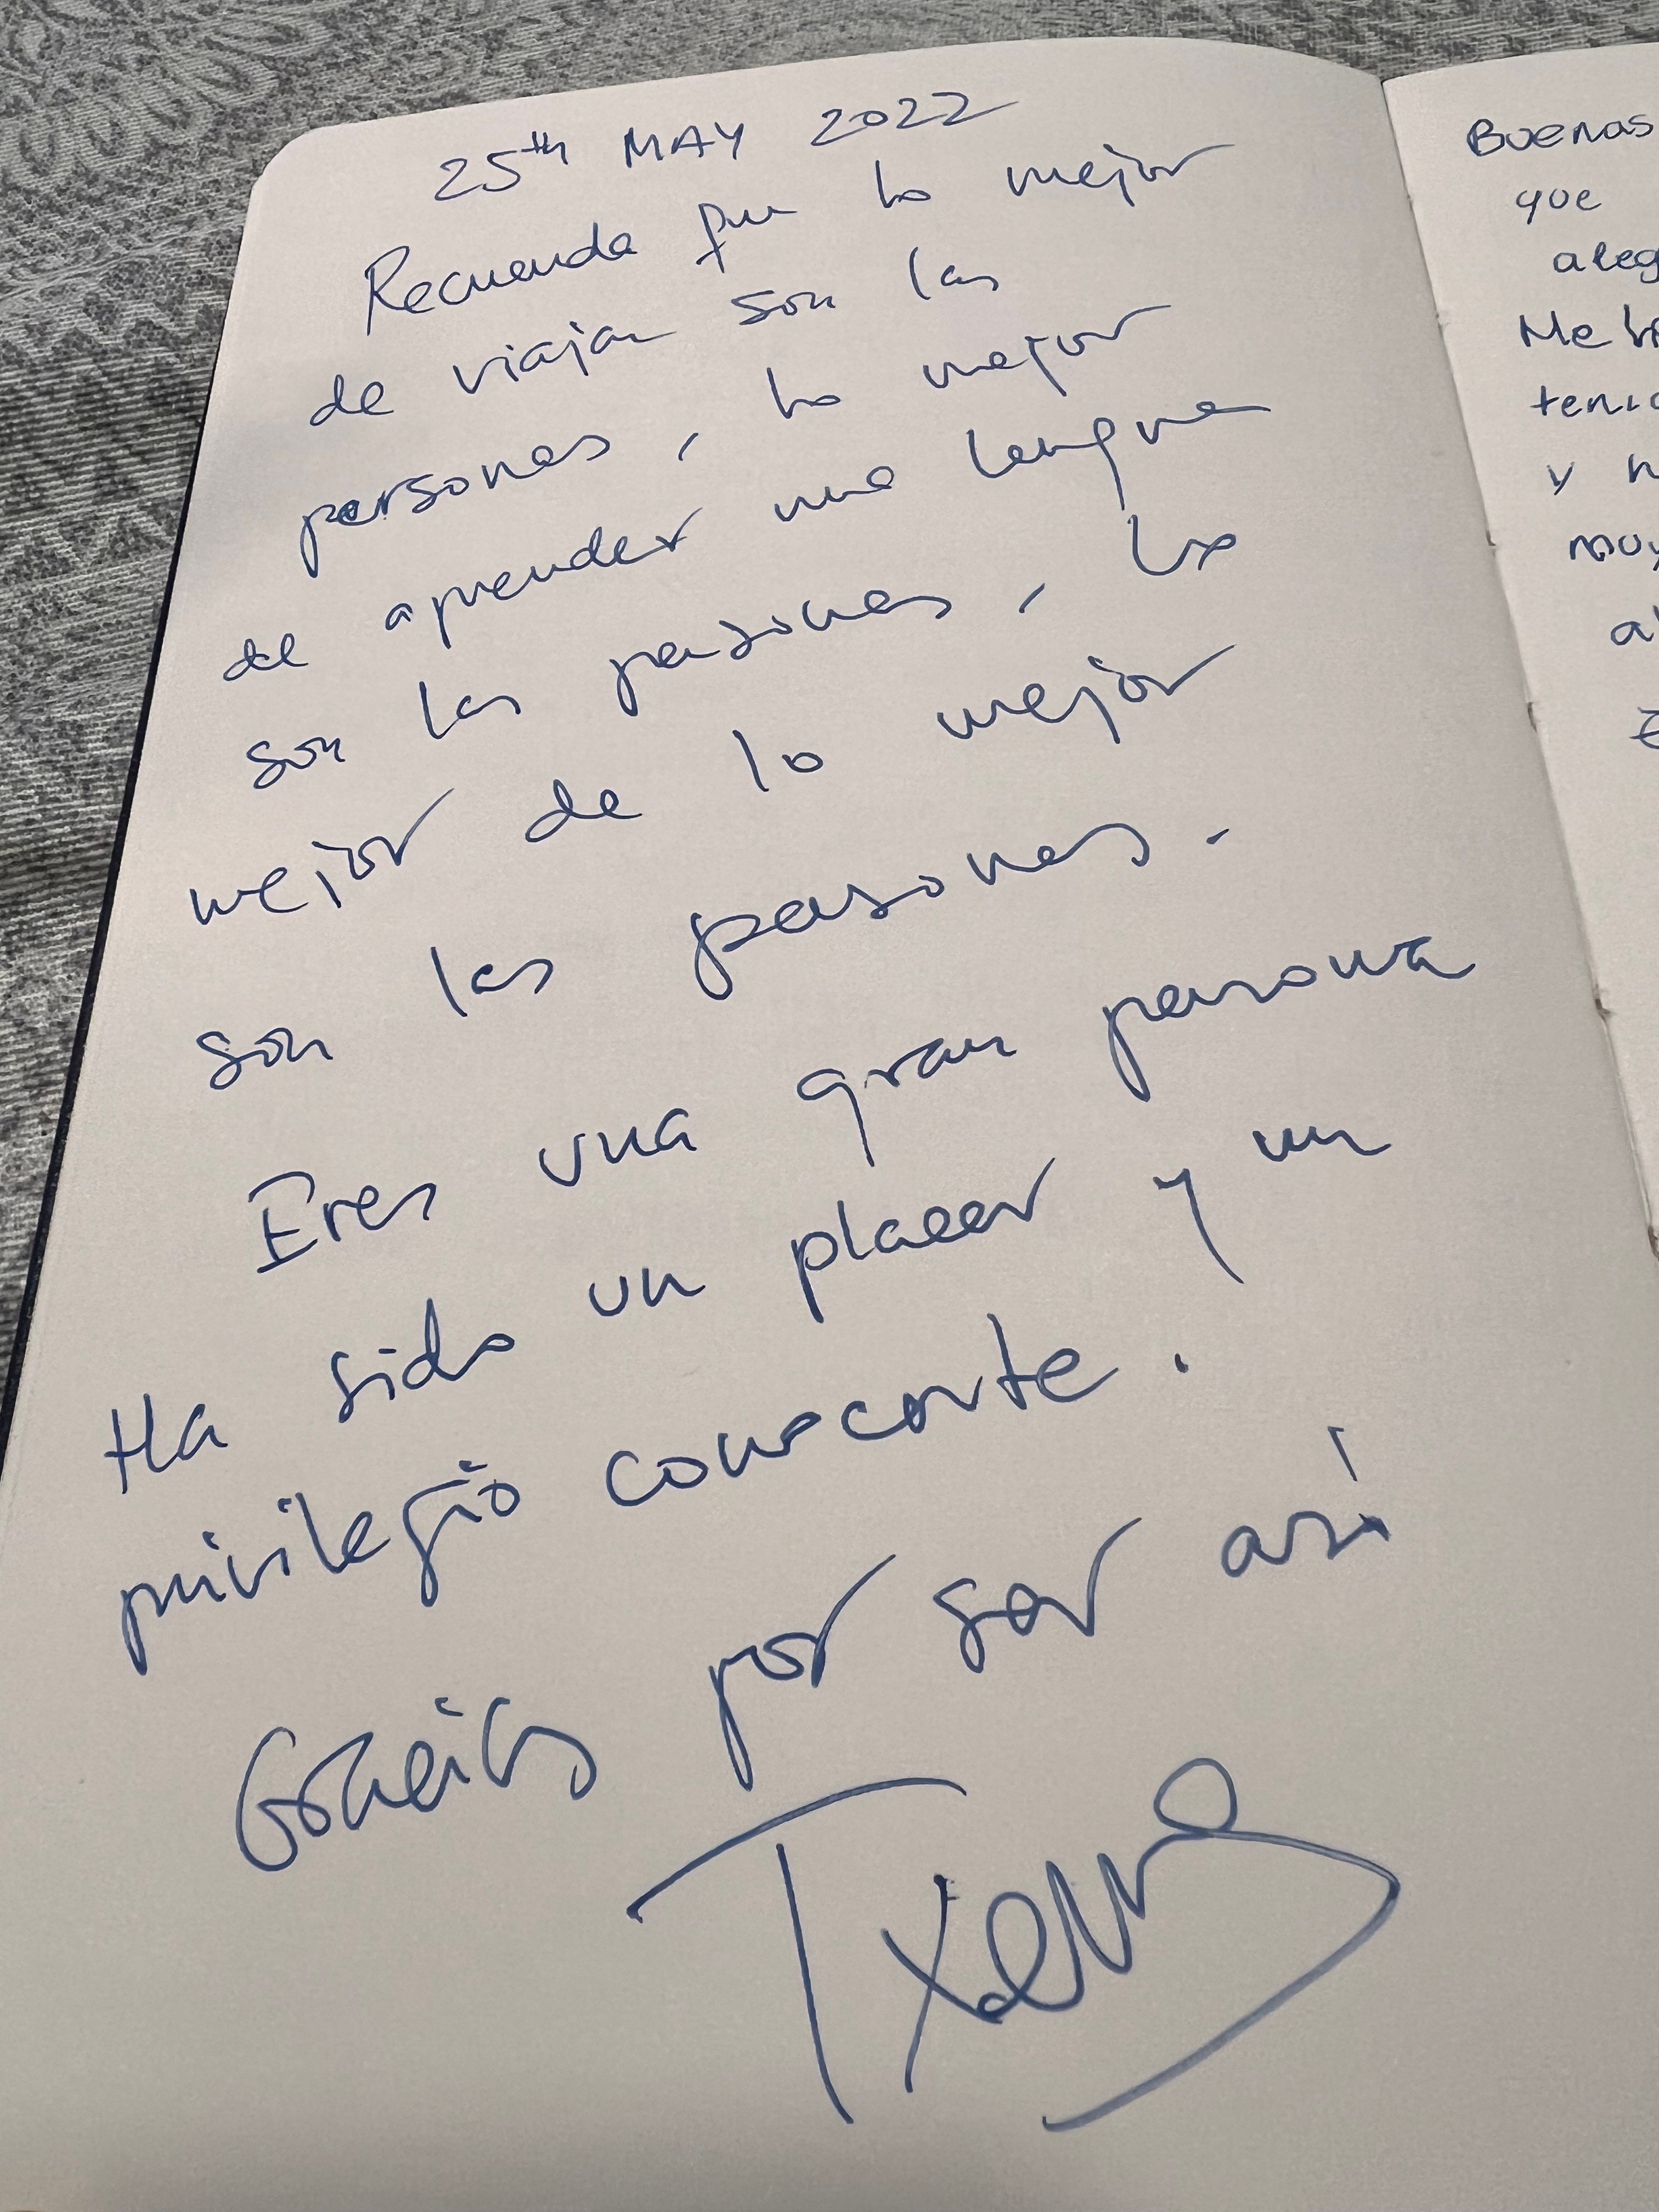 25th MAY 2022
Recuerda que lo mejor
de viajar son las
personas, lo mejor
de aprender una lengua
son las personas, lo
mejor de lo mejor
son las personas.
Eres una gran persona
Ha sido un placer y un
privilegio conocerte.
Gracias por ser así
Buenas
que
aleg
Me h
tenid
y n
muy